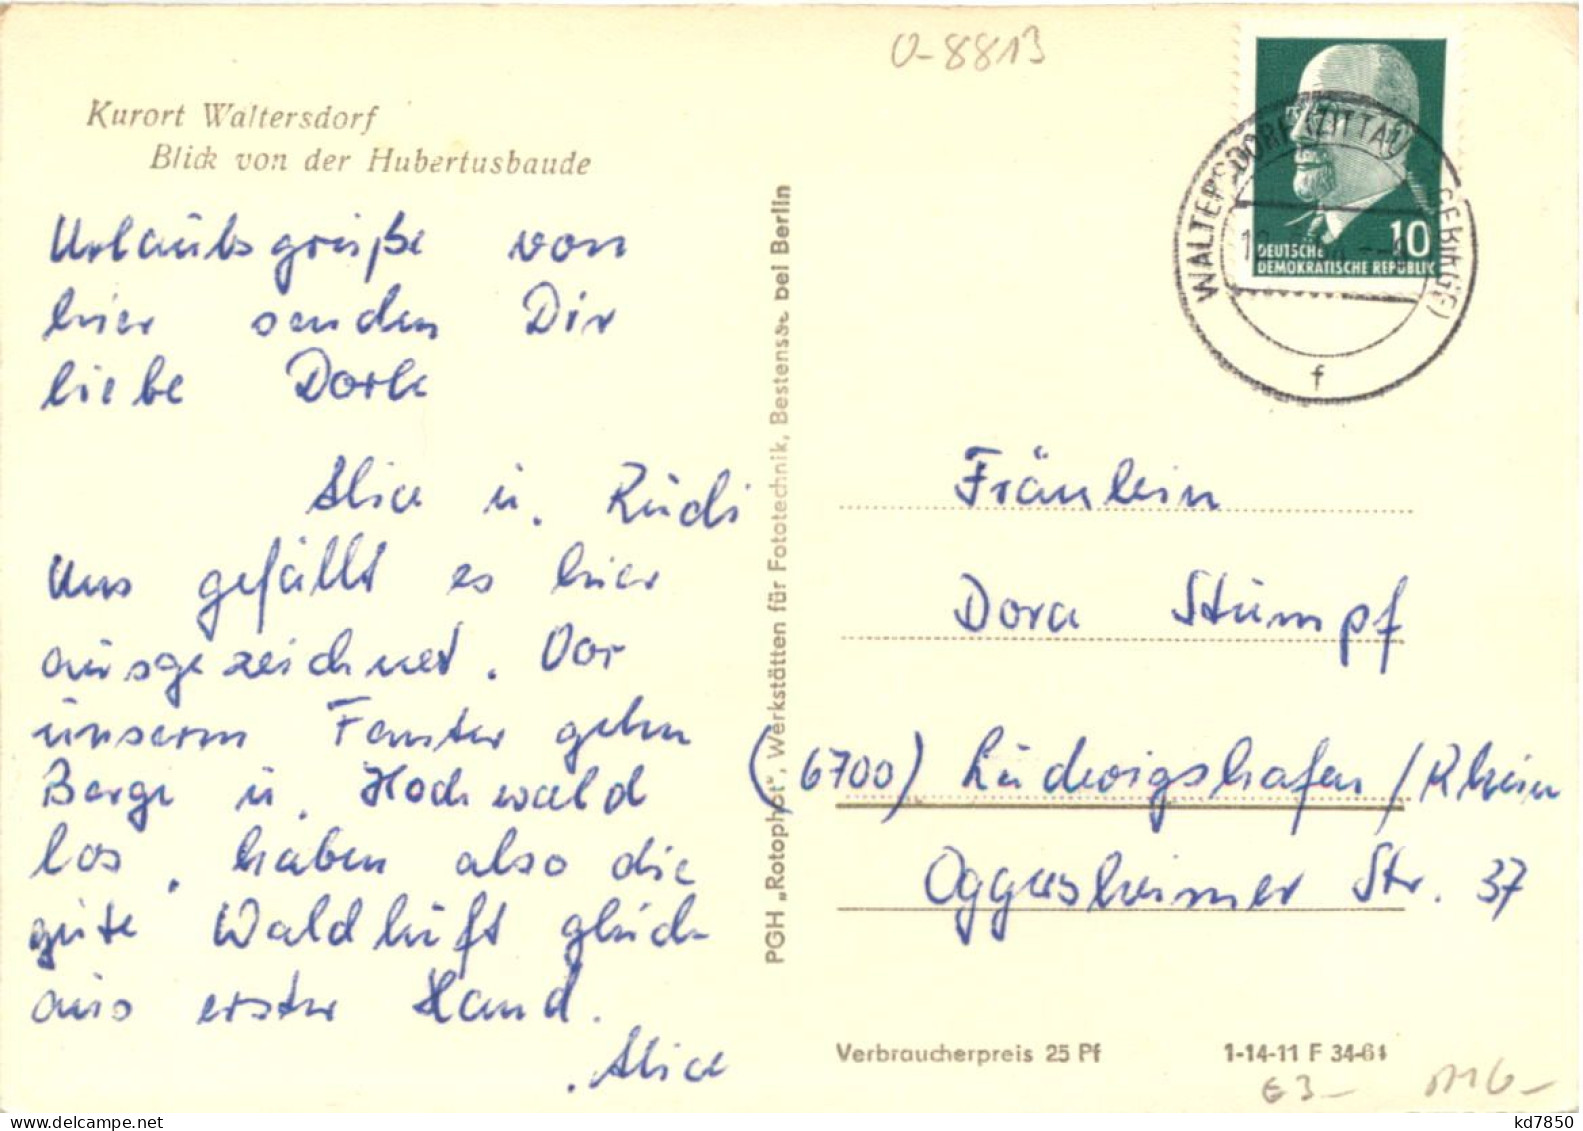 O-8813
Kurort Waltersdorf
Blick von der Hubertusbaude
Urlaubsgrüße von
hier senden Dir
liebe Dorle
Alice u. Rudi
Uns gefällt es hier
ausgezeichnet. Vor
unserm Fenster gehn
Berge u. Hochwald
los, haben also die
gute Waldluft gleich
aus erster Hand.
Alice
PGH „Rotophot“, Werkstätten für Fototechnik, Bestensee bei Berlin
10
DEUTSCHE
DEMOKRATISCHE REPUBLIK
WALTERSDORF (ZITTAU GEBIRGE)
f
Fräulein
Dora Stumpf
(6700) Ludwigshafen/Rhein
Oggersheimer Str. 37
Verbraucherpreis 25 Pf
1-14-11 F 34-64
€3-
kd7850